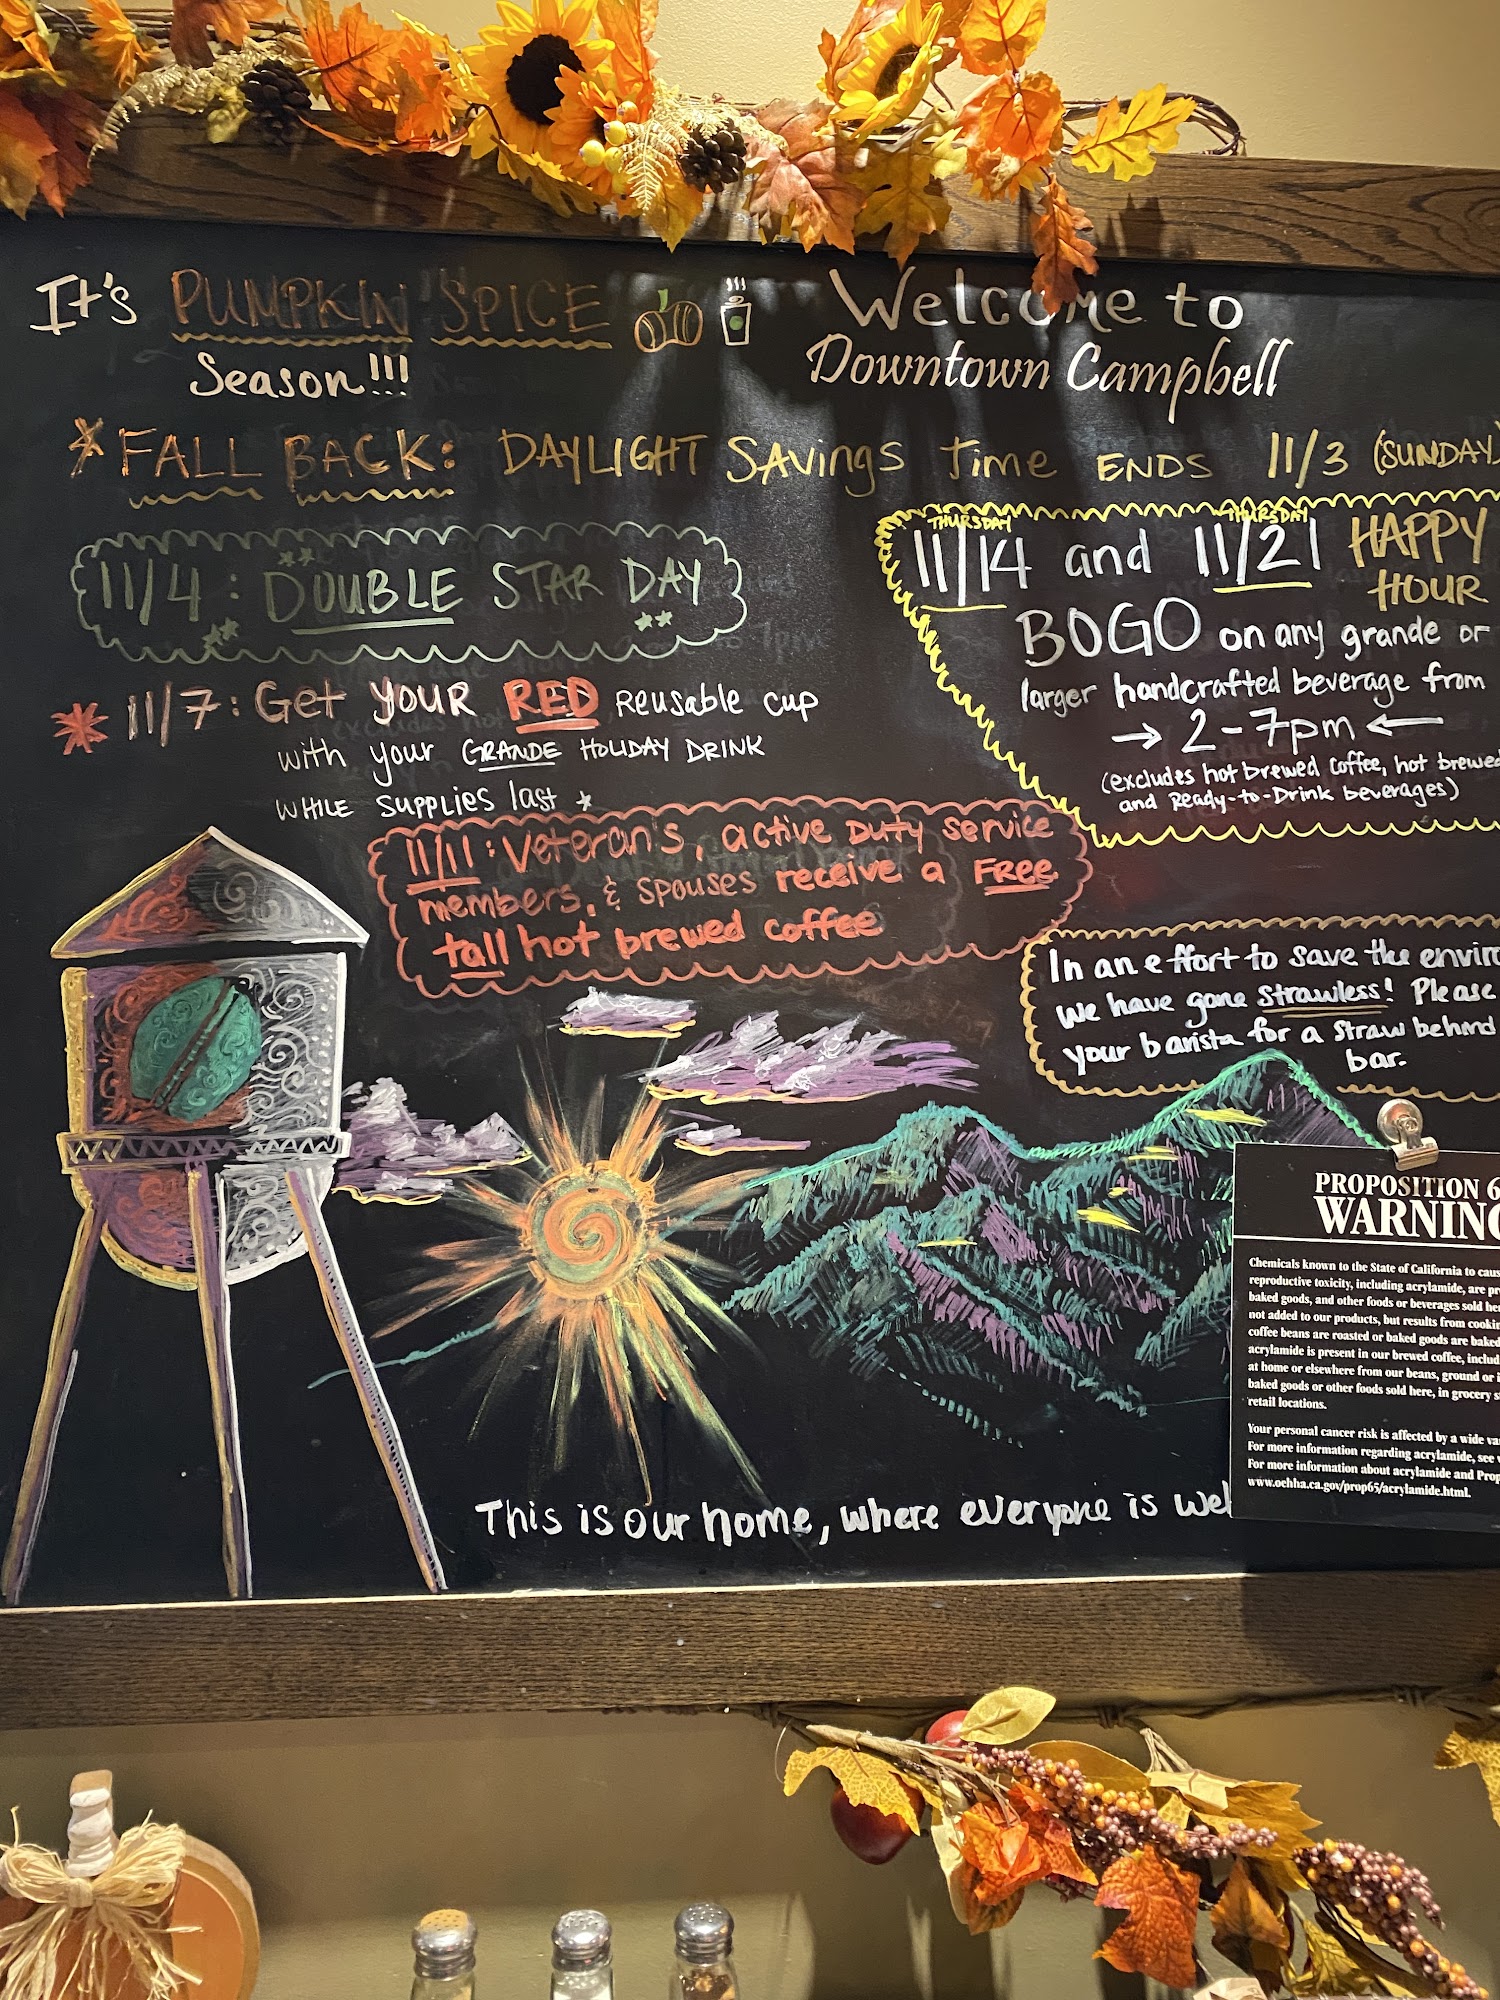 It's PUMPKIN SPICE
Season!!!
Welcome to
Downtown Campbell
*FALL BACK: DAYLIGHT SAVINGS TIME ENDS 11/3 (SUNDAY)
11/4: DOUBLE STAR DAY
* 11/7: Get YOUR RED REUSABLE CUP
with your GRANDE HOLIDAY DRINK
WHILE SUPPLIES last *
THURSDAY THURSDAY
11/14 and 11/21 HAPPY
HOUR
BOGO on any grande or
larger handcrafted beverage from
→ 2-7pm ←
(excludes hot brewed coffee, hot brewed
and Ready-to-Drink beverages)
11/11: Veteran's, active DUTY service
members, & SPOUSES receive a FREE
tall hot brewed coffee
In an effort to save the
we have gone strawless! Please
your barista for a straw behind
bar.
PROPOSITION
WARNING
Chemicals known to the State of California to
reproductive toxicity, including acrylamide, are
baked goods, and other foods or beverages sold
not added to our products, but results from
coffee beans are roasted or baked goods are baked
acrylamide is present in our brewed coffee,
at home or elsewhere from our beans, ground or
baked goods or other foods sold here, in grocery
retail locations.
Your personal cancer risk is affected by a wide
For more information regarding acrylamide, see
For more information about acrylamide and
www.oehha.ca.gov/prop65/acrylamide.html.
This is our home, where everyone is wel